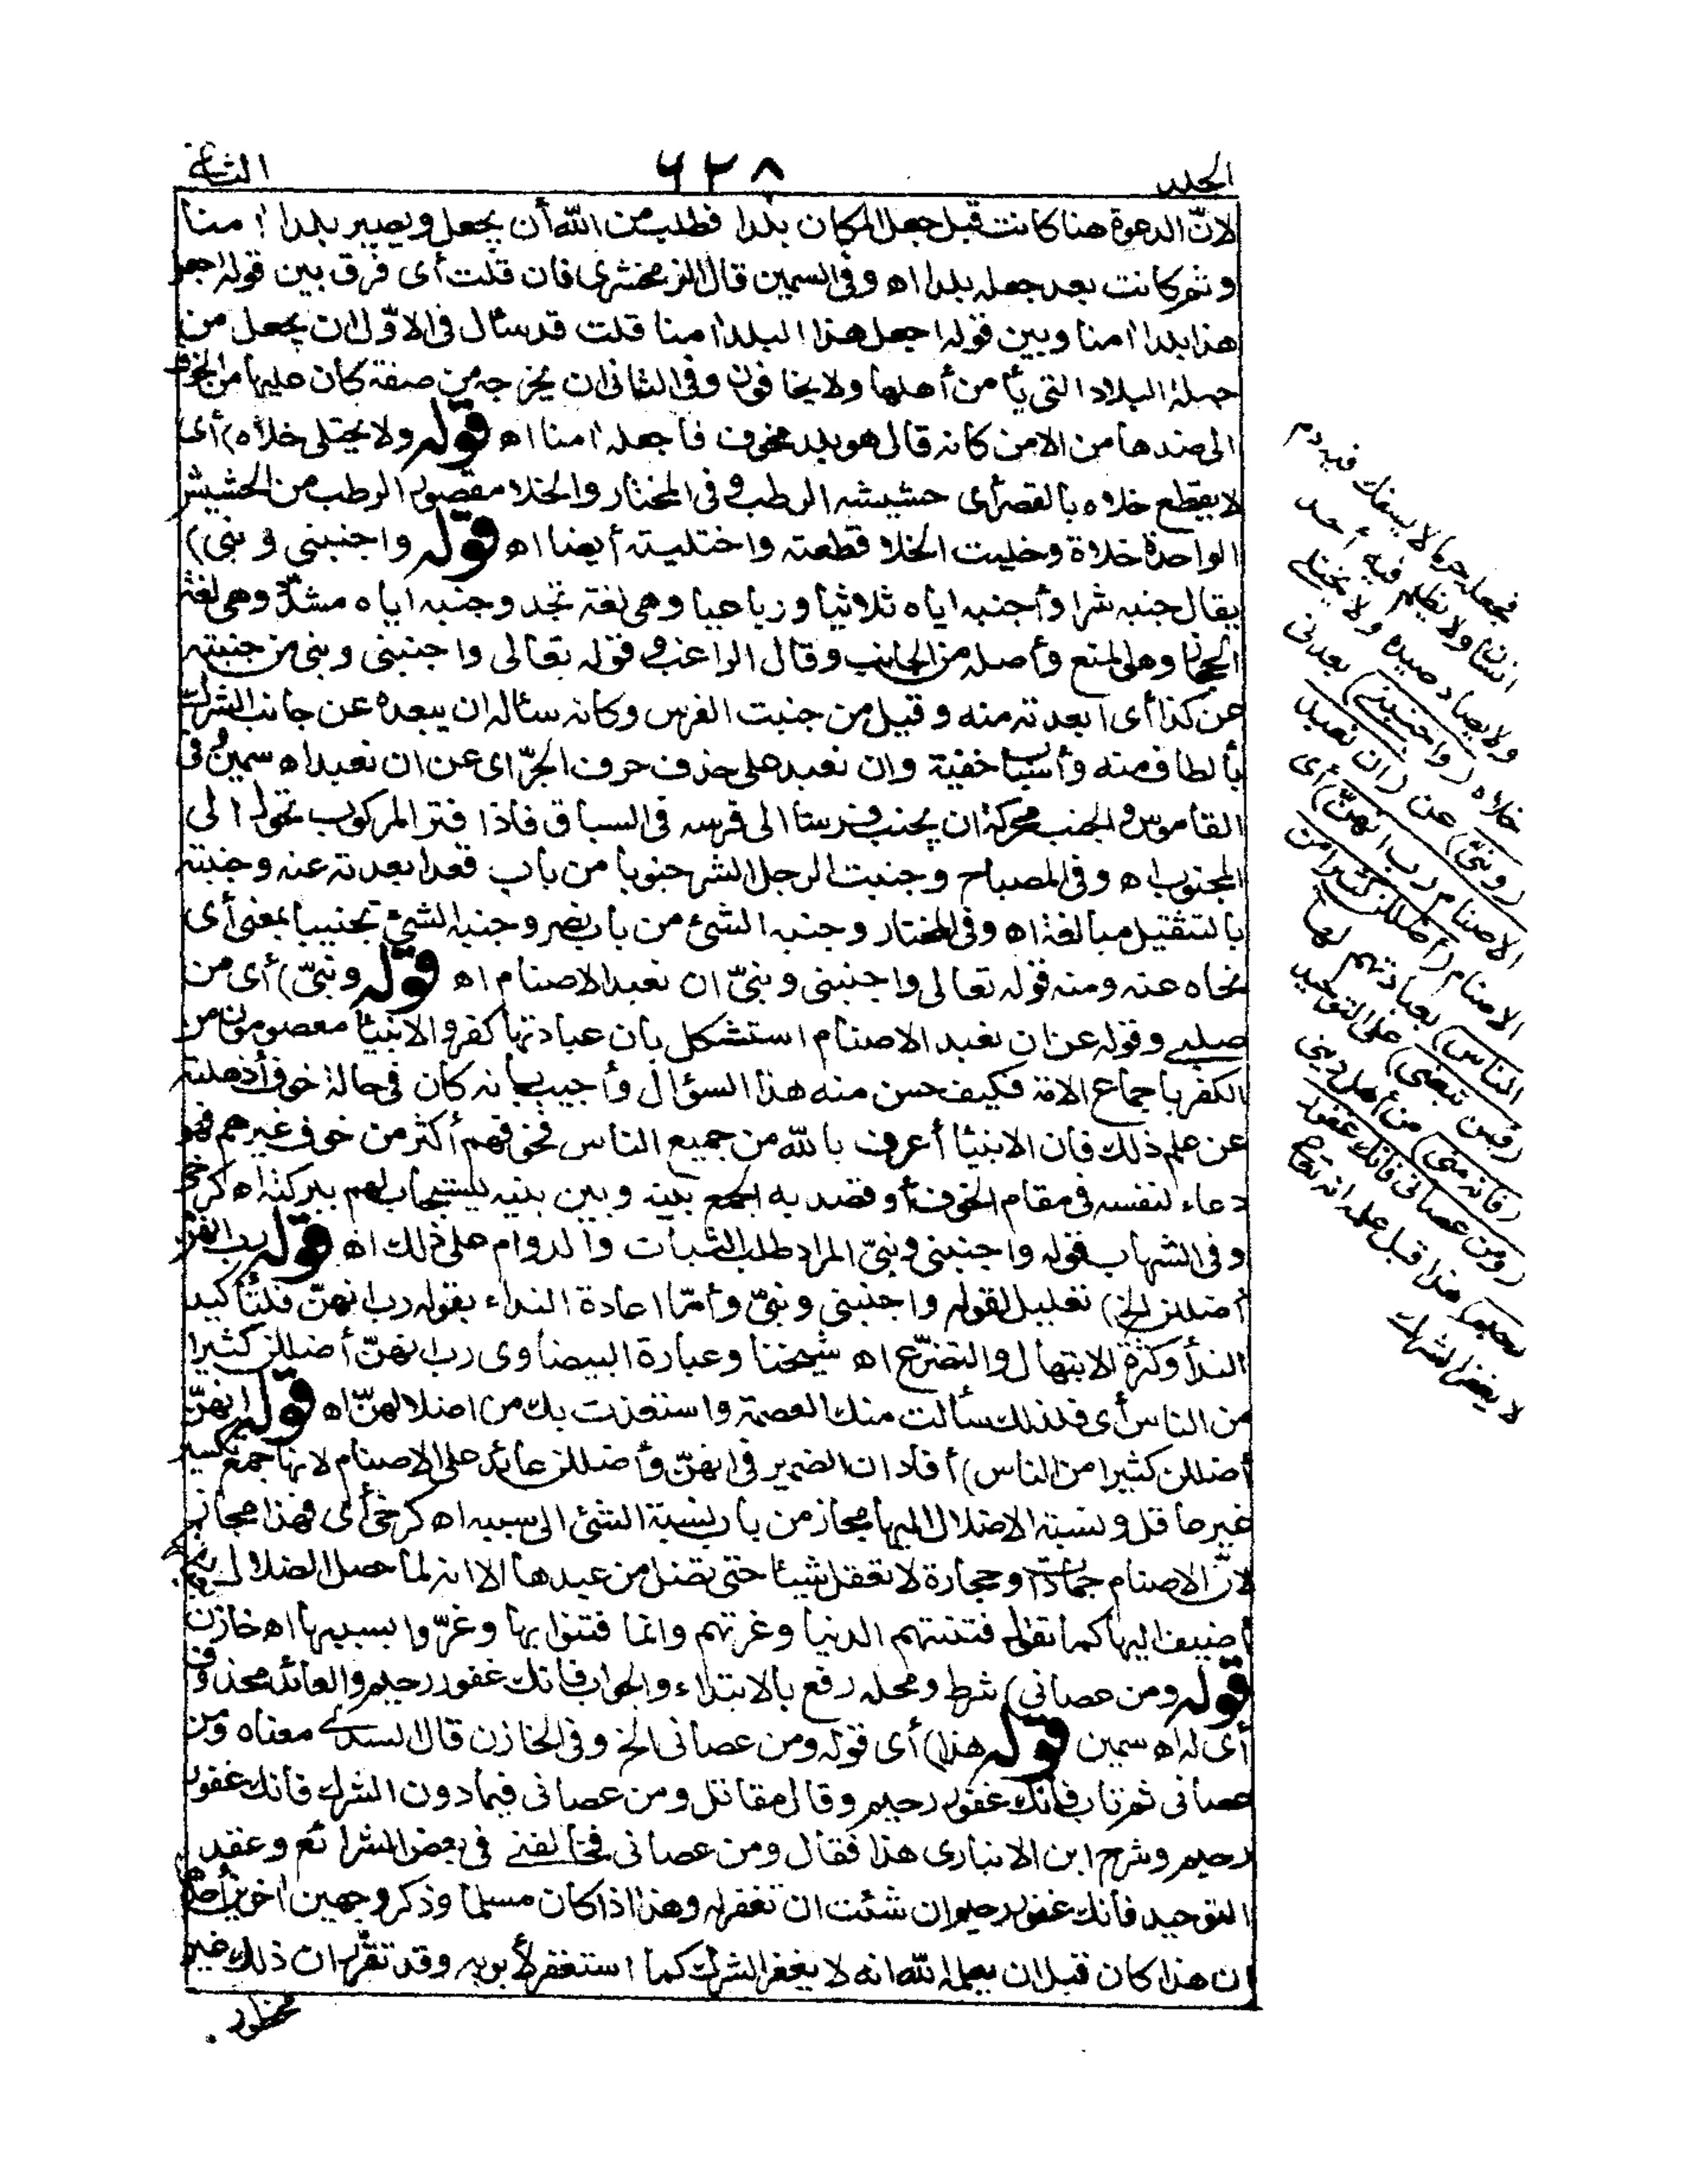 الجلد
٦٢٨
الثانى
لانّ الدعوة هنا كانت قبل جعل المكان بلدا فطلب من الله أن يجعل ويصير بلدا امنا
وثم كانت بعد جعله بلدا اه وفى السمين قال الزمخشرى فان قلت أى فرق بين قوله اجعل
هذا بلدا امنا وبين قوله اجعل هذا البلد امنا قلت قد سأل فى الاوّل ان يجعل من
جملة البلاد التى يأمن أهلها ولا يخافون وفى الثانى ان يخرجه من صفة كان عليها من الخوف
الى ضدها من الامن كانه قال هو بلد مخوف فاجعله امنا اه قوله ولا يختلى خلاه) أى
لا يقطع خلاه بالقصر أى حشيشه الرطب وفى المختار والخلا مقصور الرطب من الحشيش
الواحدة خلاة وخليت الخلا قطعته واختليته أيضا اه قوله واجنبنى وبنى)
يقال جنبه شرا وأجنبه اياه ثلاثيا ورباعيا وهى لغة نجد وجنبه اياه مشدّدا وهى لغة
الحجاز وهو المنع وأصله من الجانب وقال الراغب فى قوله تعالى واجنبنى وبنى من جنبته
عن كذا أى أبعدته منه وقيل من جنبت الفرس وكانه سئاله ان يبعده عن جانب الشرك
بألطاف منه وأسباب خفية وان نعبد على حذف حرف الجرّ اى عن ان نعبد اه سمين وفى
القاموس والجنب محركة ان يجنب فرسا الى فرسه فى السباق فاذا فتر المركوب تحول الى
المجنوب اه وفى المصباح وجنبت الرجل الشر جنوبا من باب قعد ابعدته عنه وجنبته
بالتثقيل مبالغة اه وفى المختار وجنبه الشئ من باب نصر وجنبه الشئ تجنيبا بمعنى أى
نحاه عنه ومنه قوله تعالى واجنبنى وبنىّ ان نعبد الاصنام اه قوله وبنىّ) أى من
صلبى وقوله عن ان نعبد الاصنام استشكل بان عبادتها كفر والانبياء معصومون من
الكفر باجماع الامة فكيف حسن منه هذا السؤال وأجيب بانه كان فى حالة خوف أذهلته
عن علم ذلك فان الانبياء أعرف بالله من جميع الناس فخوفهم أكثر من خوف غيرهم فهو
دعاء لنفسه فى مقام الخوف أو قصد به الجمع بينه وبين بنيه ليستجاب لهم ببركته اه كرخى
وفى الشهاب قوله واجنبنى وبنىّ المراد طلب الثبات والدوام على ذلك اه قوله رب انهن
أضللن الخ) تعليل لقوله واجنبنى وبنىّ وأمّا اعادة النداء بقوله رب انهنّ فلتأكيد
النداء وكثرة الابتهال والتضرّع اه شيخنا وعبارة البيضاوى رب انهنّ أضللن كثيرا
من الناس أى فلذلك سألت منك العصمة واستعذت بك من اضلالهنّ اه قوله انهنّ
أضللن كثيرا من الناس) أفاد ان الضمير فى انهنّ وأضللن عائد على الاصنام لانها جمع تكسير
غير عاقل ونسبة الاضلال اليها مجاز من باب نسبة الشئ الى سببه اه كرخى أى فهذا مجاز
لانّ الاصنام جمادات وحجارة لا تعقل شيئا حتى تضل من عبدها الا انه لما حصل الضلال بعبادتها
أضيف اليها كما تقول فتنتهم الدنيا وغرتهم وانما فتنوا بها وغرّوا بسببها اه خازن
قوله ومن عصانى) شرط ومحله رفع بالابتداء والجواب فانك غفور رحيم والعائد محذوف
أى له اه سمين قوله هذا) أى قوله ومن عصانى الخ وفى الخازن قال السدى معناه ومن
عصانى ثم تاب فانك غفور رحيم وقال مقاتل ومن عصانى فيما دون الشرك فانك غفور
رحيم وشرح ابن الانبارى هذا فقال ومن عصانى فخالفنى فى بعض الشرائع وعقد
التوحيد فانك غفور رحيم ان شئت ان تغفر له وهذا اذا كان مسلما وذكر وجهين اخرين أحدهما
ان هذا كان قبل ان يعلمه الله انه لا يغفر الشرك كما استغفر لأبويه وقد تقرّر ان ذلك غير
محظور
فجعله حرما لا يسفك فيه دم
انسان ولا يظلم فيه أحد
ولا يصاد صيده ولا يختلى
خلاه (واجنبنى) بعدنى
(وبنىّ) عن (ان نعبد
الاصنام رب انهنّ) أى
الاصنام (أضللن كثيرا من
الناس) بعبادتهم لها
(فمن تبعنى) على التوحيد
(فانه منى) من أهل دينى
(ومن عصانى فانك غفور
رحيم) هذا قبل علمه انه تعالى
لا يغفر الشرك